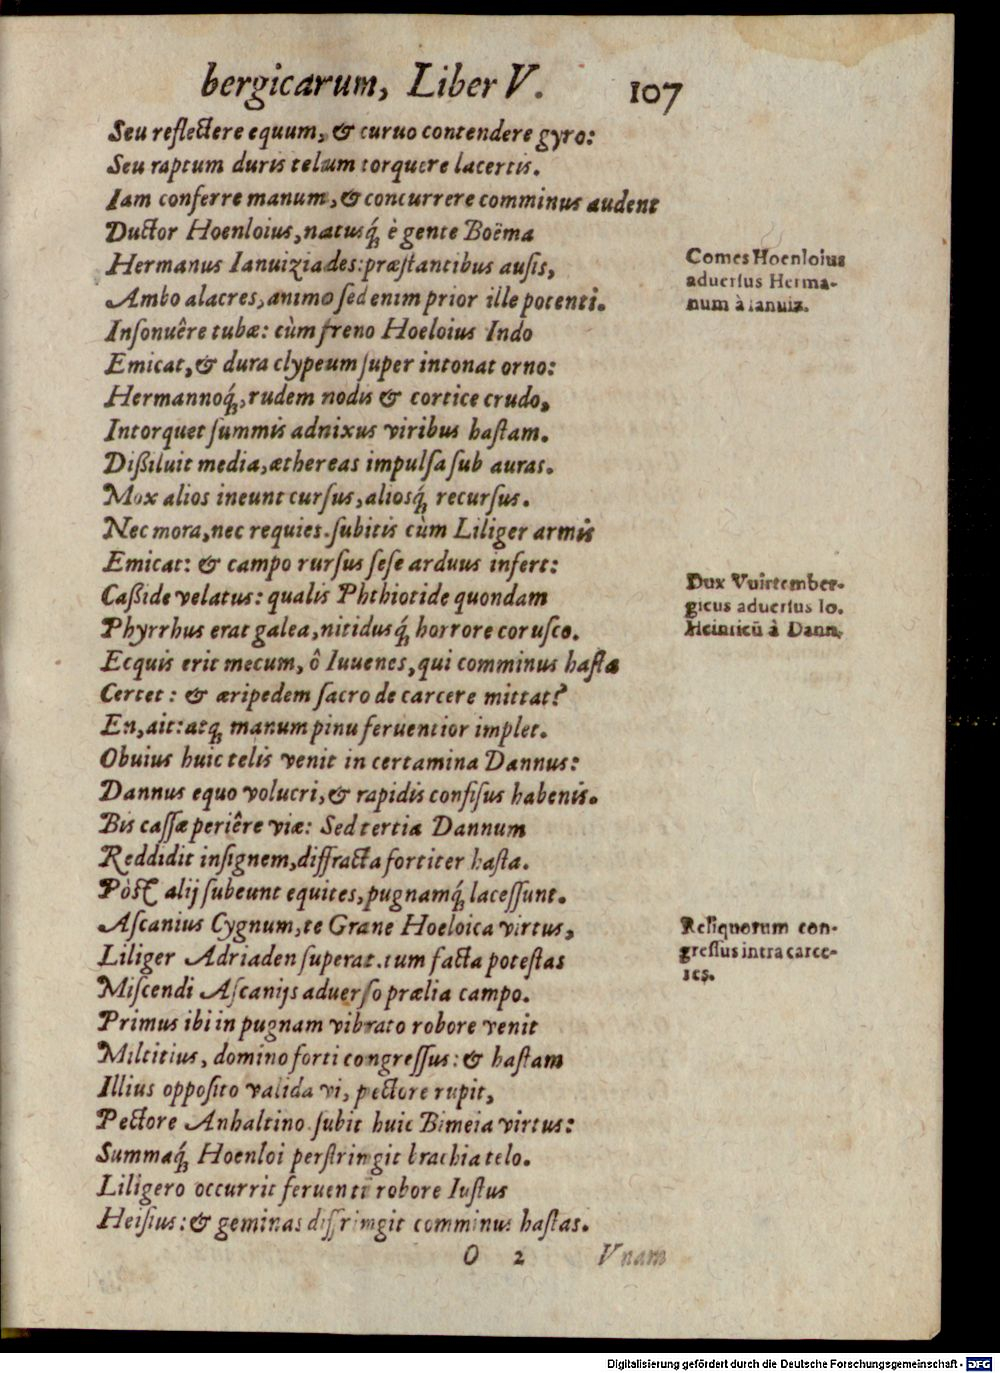 bergicarum, Liber V. 107
Seu reflectere equum, & curuo contendere gyro:
Seu raptum duris telum torquere lacertis.
Iam conferre manum, & concurrere comminus audent
Ductor Hoenloius, natusq́; è gente Boëma
Hermanus Ianuiziades: præstantibus ausis,
Ambo alacres, animo sed enim prior ille potenti.
Comes Hoenloius
aduersus Herma-
num à Ianuiz.
Insonuêre tubæ: cùm freno Hoeloius Indo
Emicat, & dura clypeum super intonat orno:
Hermannoq́;, rudem nodis & cortice crudo,
Intorquet summis adnixus viribus hastam.
Dißiluit media, æthereas impulsa sub auras.
Mox alios ineunt cursus, aliosq́; recursus.
Nec mora, nec requies. subitis cùm Liliger armis
Emicat: & campo rursus sese arduus infert:
Caßide velatus: qualis Phthiotide quondam
Phyrrhus erat galea, nitidusq́; horrore corusco.
Dux Vuirtember-
gicus aduersus Io.
Heinricū à Dann.
Ecquis erit mecum, ô Iuuenes, qui comminus hasta
Certet: & æripedem sacro de carcere mittat?
En, ait: atq; manum pinu feruentior implet.
Obuius huic telis venit in certamina Dannus:
Dannus equo volucri, & rapidis confisus habenis.
Bis cassæ periêre viæ: Sed tertia Dannum
Reddidit insignem, diffracta fortiter hasta.
Pòst alij subeunt equites, pugnamq́; lacessunt.
Ascanius Cygnum, te Grane Hoeloica virtus,
Liliger Adriaden superat. tum facta potestas
Miscendi Ascanijs aduerso prælia campo.
Reliquorum con-
gressus intra carce-
res.
Primus ibi in pugnam vibrato robore venit
Miltitius, domino forti congressus: & hastam
Illius opposito valida vi, pectore rupit,
Pectore Anhaltino. subit huic Bimeia virtus:
Summaq́; Hoenloi perstringit brachia telo.
Liligero occurrit feruenti robore Iustus
Heisius: & geminas diffringit comminus hastas.
O 2 Vnam
Digitalisierung gefördert durch die Deutsche Forschungsgemeinschaft - DFG